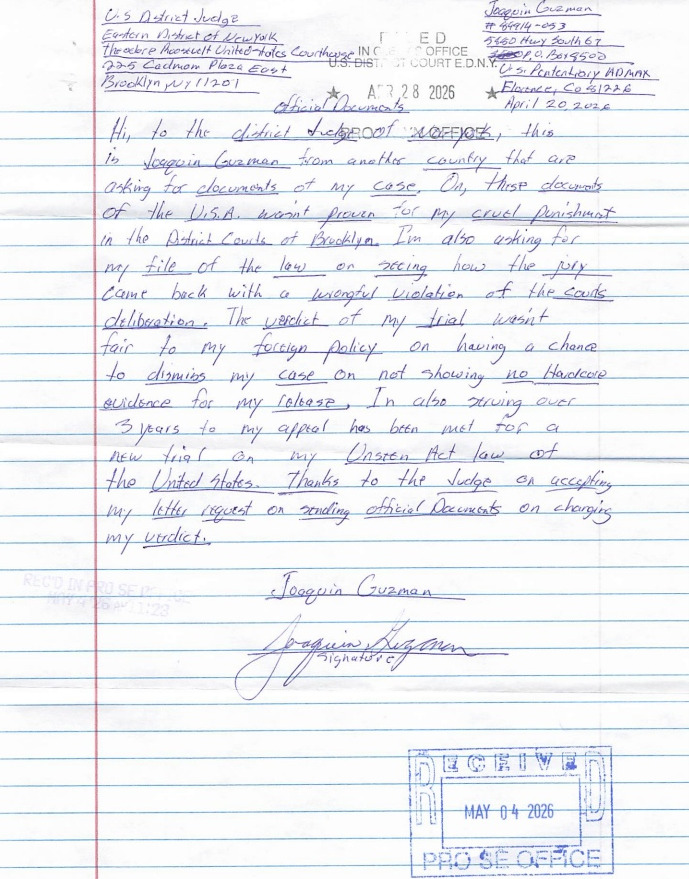 U.S District Judge
Eastern District of New York
Theodore Roosevelt United States Courthouse
225 Cadman Plaza East
Brooklyn Ny 11201
Joaquin Guzman
# 89914-053
5880 Hwy South 67
P.O. Box 8500
U.S. Penitentiary ADMAX
Florence, Co 81226
April 20, 2026
IN OFFICE
U.S. DISTRICT COURT E.D.N.Y.
★ APR 28 2026 ★
OFFICE
official Documents
Hi, to the district Judge of this
is Joaquin Guzman from another country that are
asking for documents of my case. On, these documents
of the U.S.A. wasn't proven for my cruel punishment
in the District Courts of Brooklyn. I'm also asking for
my file of the law on seeing how the jury
came back with a wrongful violation of the courts
deliberation. The verdict of my trial wasn't
fair to my foreign policy on having a chance
to dismiss my case on not showing no Hardcore
evidence for my release. In also serving over
3 years to my appeal has been met for a
new trial on my Unseen Act law of
the United States. Thanks to the Judge on accepting
my letter request on sending official Documents on charging
my verdict.
REC'D IN PRO SE OFFICE
Joaquin Guzman
Joaquin Guzman
signature
RECEIVED
MAY 04 2026
PRO SE OFFICE